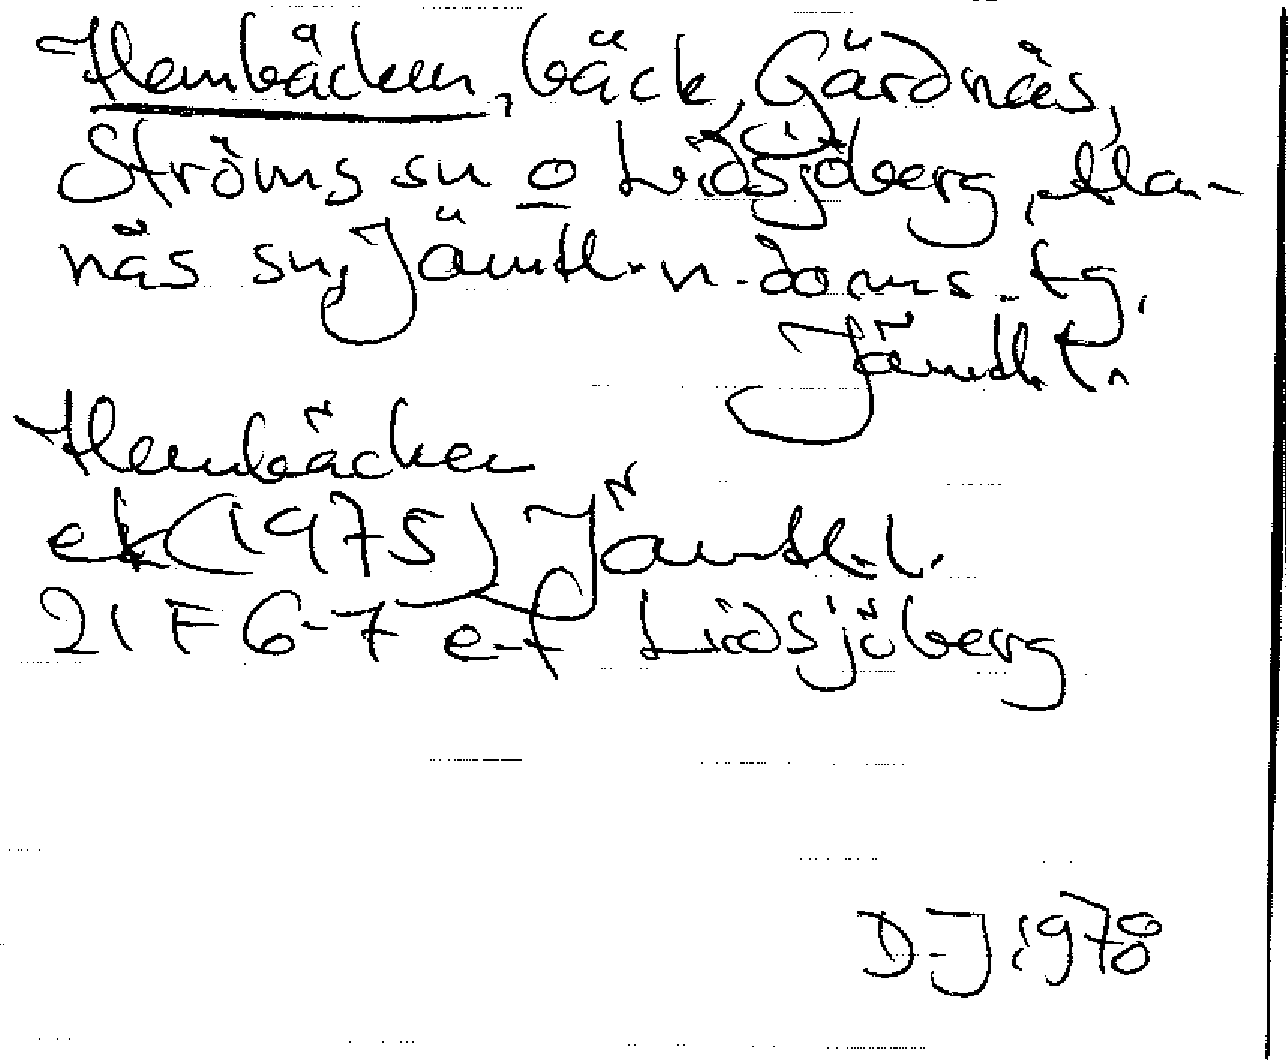 Hembäcken, bäck, Gärdnäs,
Ströms sn o Lidsjöberg, Ala-
näs sn, Jämtl. n. doms. tg,
Jämtl. l.
Hembäcken
ek (1975) Jämtl. l.
21 F 6-7 e-f Lidsjöberg
D-J 1978